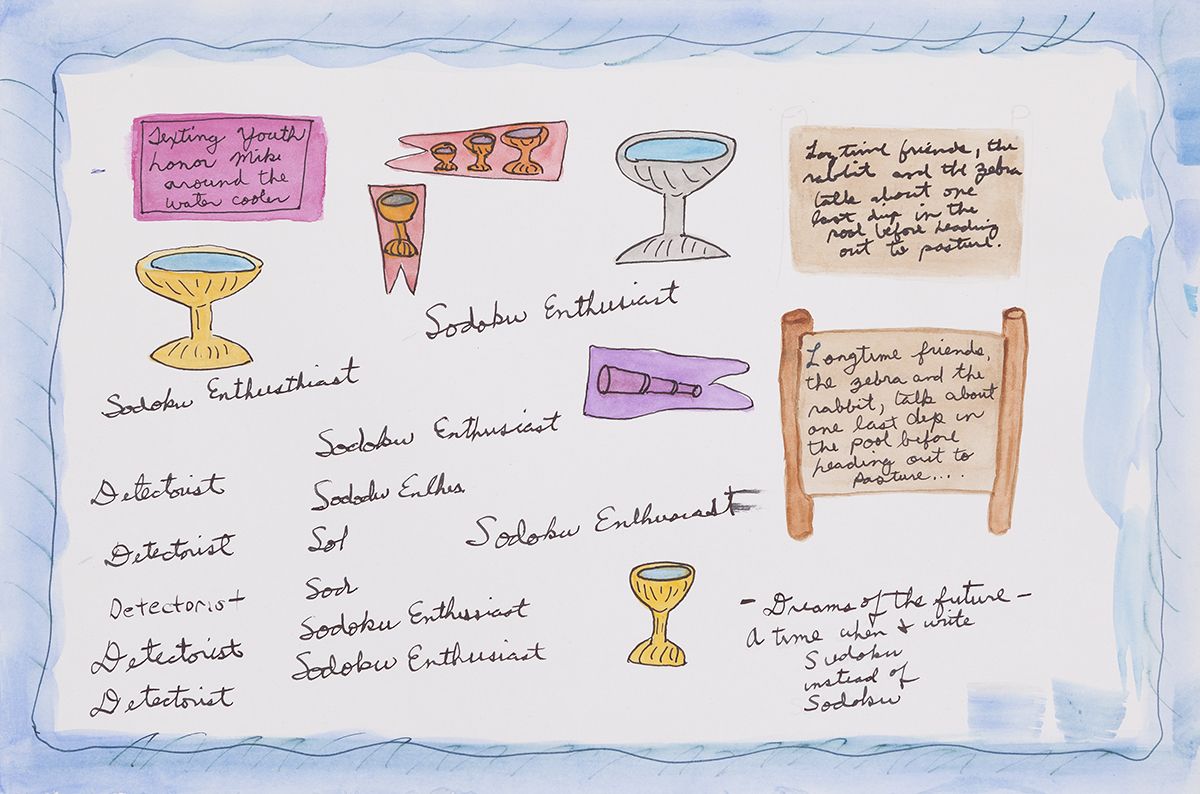 Texting Youth
honor Mike
around the
water cooler
Longtime friends, the
rabbit and the zebra
talk about one
last dip in the
pool before heading
out to pasture.
Sodoku Enthusiast
Sodoku Enthusthiast
Longtime friends,
the zebra and the
rabbit, talk about
one last dip in
the pool before
heading out to
pasture....
Sodoku Enthusiast
Detectorist
Sodoku Enthes
Sodoku Enthusiast
Detectorist
Sol
Detectorist
Sod
Sodoku Enthusiast
Detectorist
Sodoku Enthusiast
Detectorist
- Dreams of the future -
A time when I write
Sudoku
instead of
Sodoku